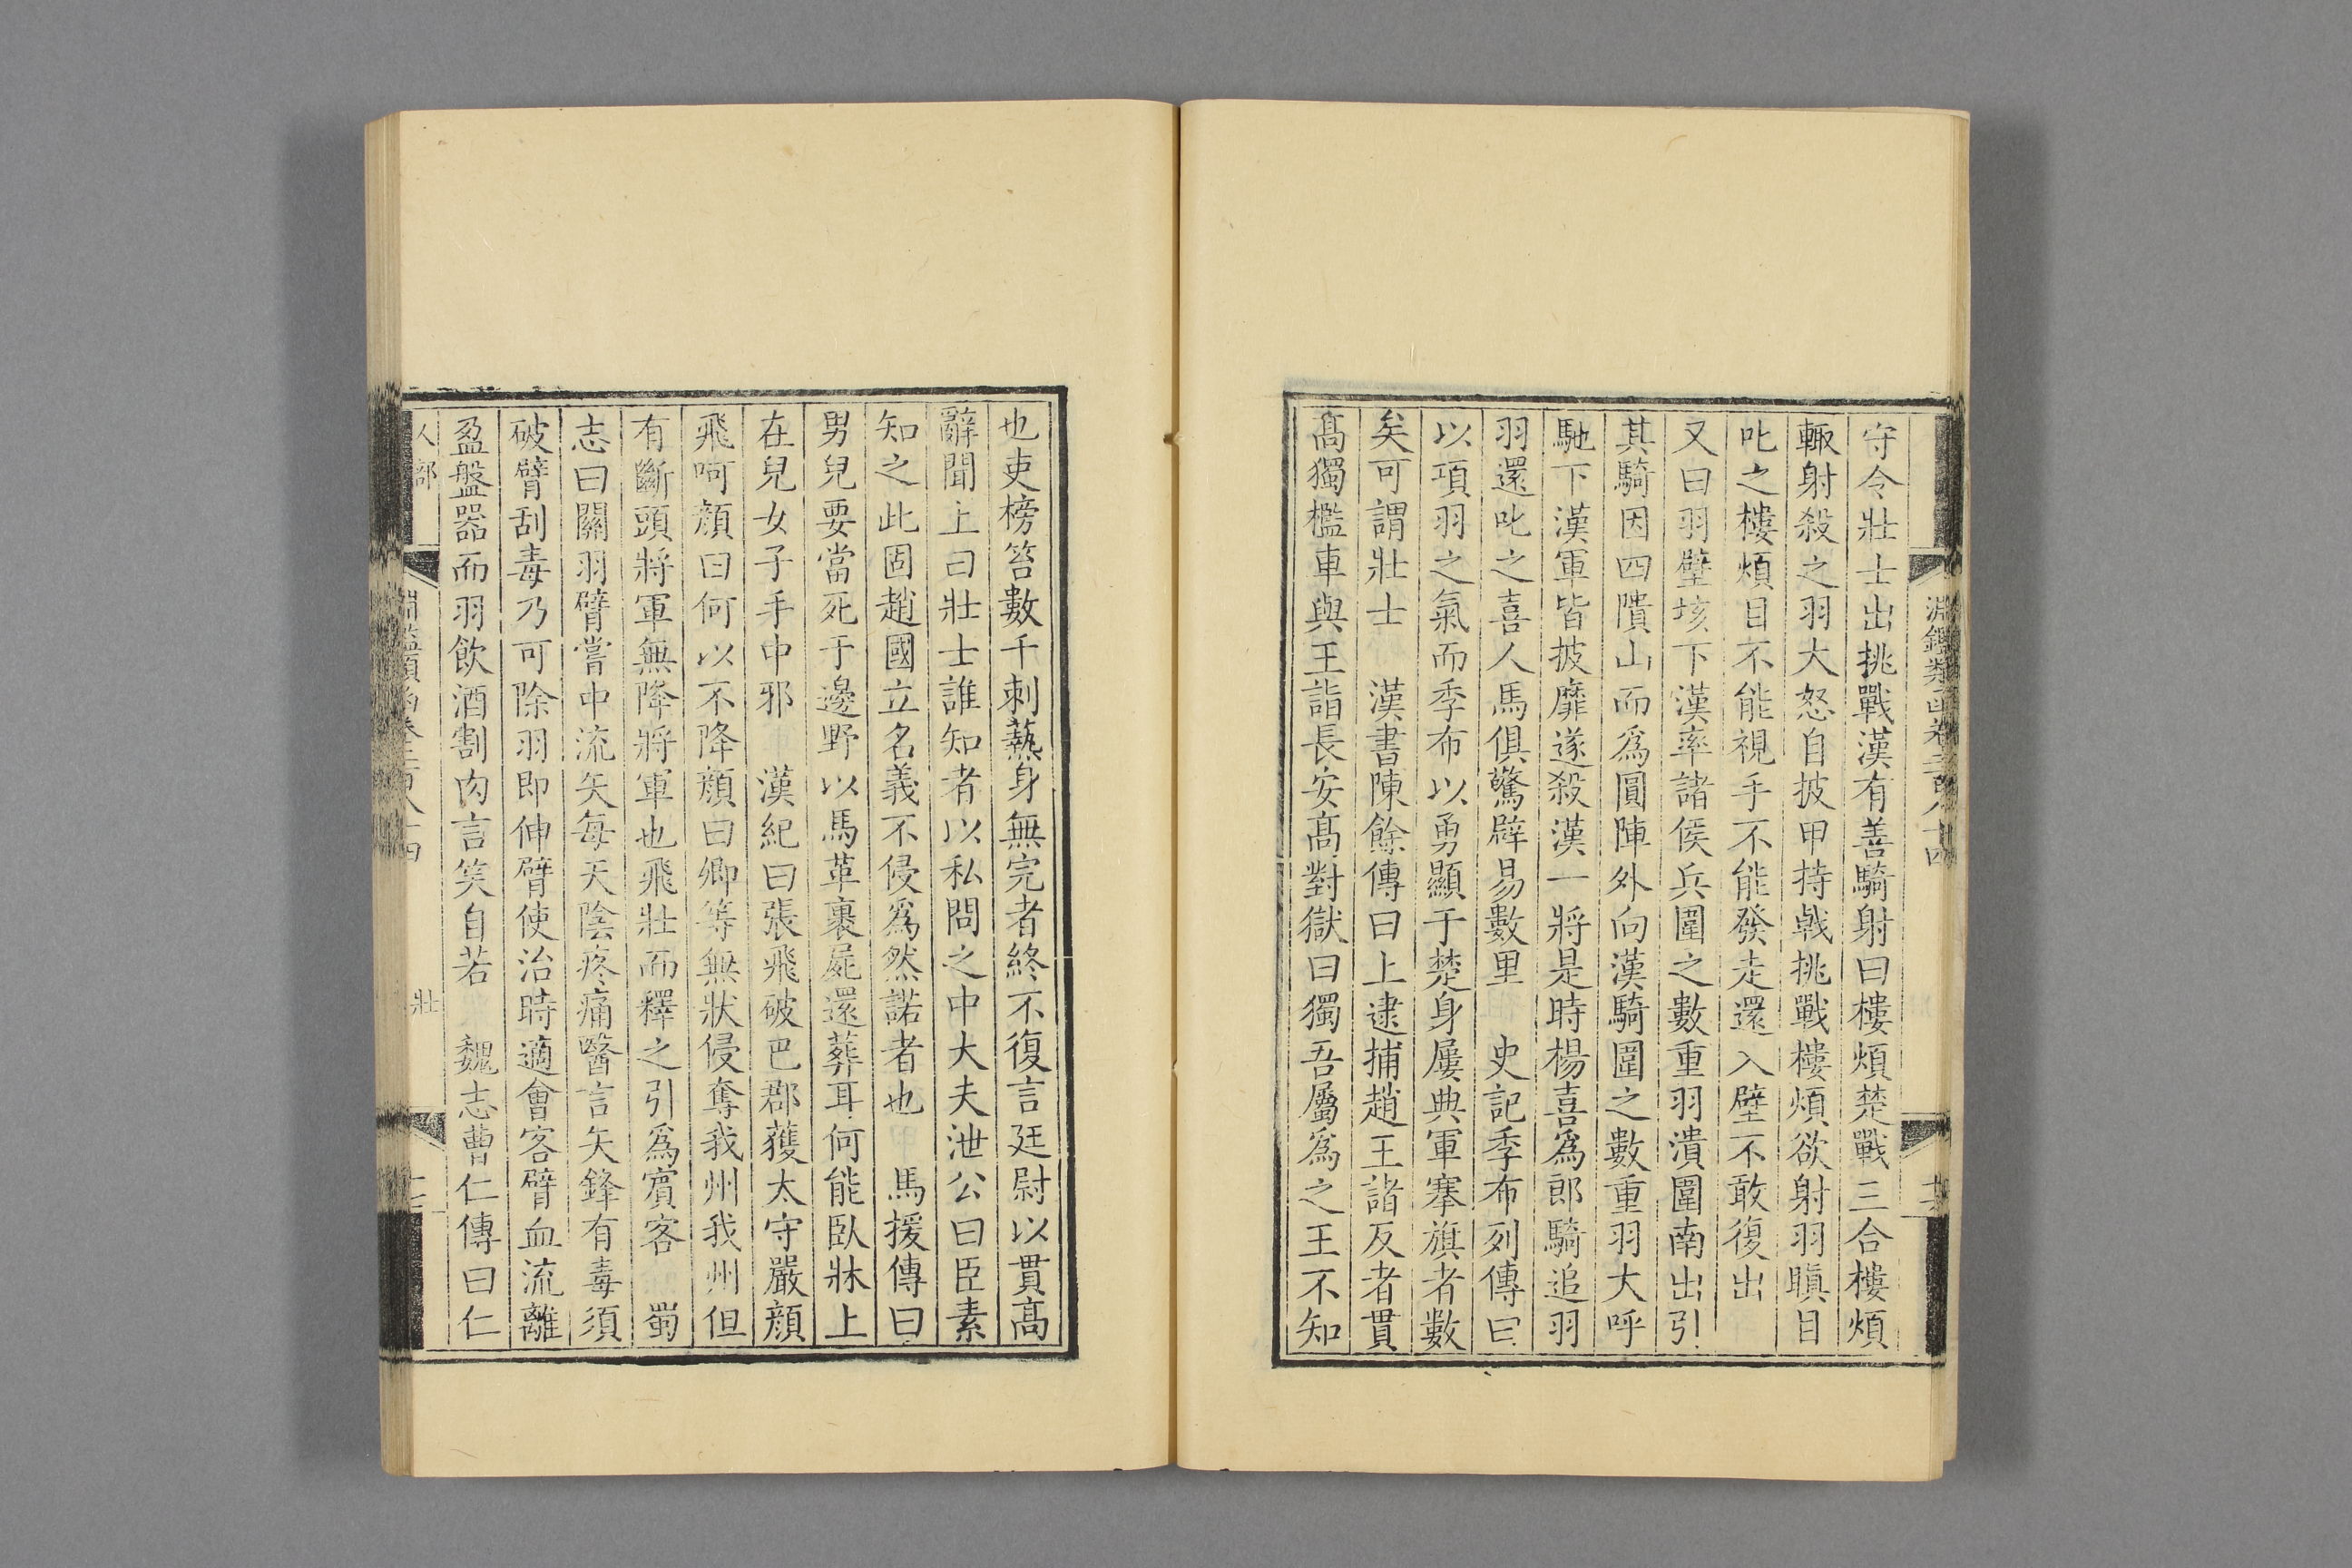 守令壯士出挑戰漢有善騎射曰樓煩楚戰三合樓煩
輙射殺之羽大怒自披甲持戟挑戰樓煩欲射羽瞋目
叱之樓煩目不能視手不能發走還入壁不敢復出
又曰羽壁垓下漢率諸侯兵圍之數重羽潰圍南出引
其騎因四隤山而爲圓陣外向漢騎圍之數重羽大呼
馳下漢軍皆披靡遂殺漢一將是時楊喜爲郎騎追羽
羽還叱之喜人馬俱驚辟易數里　史記季布列傳曰
以項羽之氣而季布以勇顯于楚身屢典軍搴旗者數
矣可謂壯士　漢書陳餘傳曰上逮捕趙王諸反者貫
髙獨檻車與王詣長安髙對獄曰獨吾屬爲之王不知
也吏榜笞數千刺爇身無完者終不復言廷尉以貫髙
辭聞上曰壯士誰知者以私問之中大夫泄公曰臣素
知之此固趙國立名義不侵爲然諾者也　馬援傳曰
男兒要當死于邊野以馬革裹屍還葬耳何能臥牀上
在兒女子手中邪　漢紀曰張飛破巴郡獲太守嚴顔
飛呵顔曰何以不降顔曰卿等無狀侵奪我州我州但
有斷頭將軍無降將軍也飛壯而釋之引爲賓客　蜀
志曰關羽臂嘗中流矢每天陰疼痛醫言矢鋒有毒須
破臂刮毒乃可除羽即伸臂使治時適會客臂血流離
盈盤器而羽飲酒割肉言笑自若　魏志曹仁傳曰仁
人部
壯